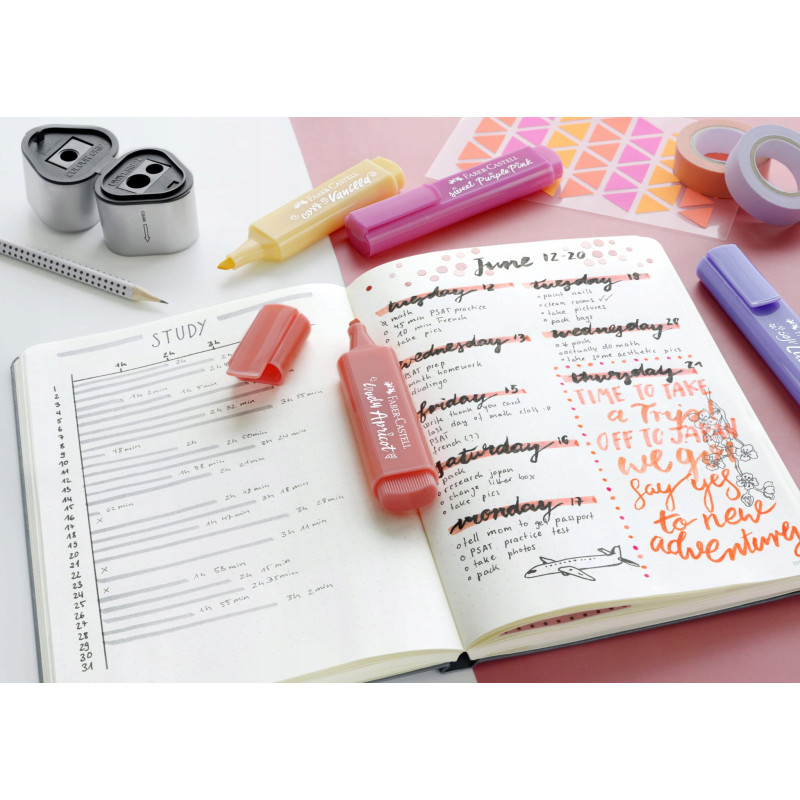 FABER-CASTELL
soft Vanilla
FABER-CASTELL
sweet Purple Pink
FABER-CASTELL
lovely Apricot
STUDY
1h 2h 3h
1
2
3
4
5
6
7
8
9
10
11
12
13
14
15
16
17
18
19
20
21
22
23
24
25
26
27
28
29
30
31
1h 2min
1h 5min
2h 32 min
3h 55min
48min
2h
2h 50min
2h 24min
1h 38 min
2h 21min
62min
2h
3h 18min
1h 47min
2h 28min
3h 11min
1h 58 min
2h 15 min
2h 35min
1h 55min
3h 2min
June 12-20
tuesday 12
math
45 min PSAT practice
10 min French
take pics
wednesday 13
PSAT prep
math homework
duolingo
friday 15
write thank you card
last day of math class :))
PSAT
french (?)
saturday 16
pack
research japan
change litter box
take pics
monday 17
tell mom to get passport
PSAT practice test
take photos
pack
tuesday 18
paint nails
clean rooms
take pictures
pack bags
wednesday 20
pack
actually do math
take some aesthetic pics
thursday 21
TIME TO TAKE
a Trip!
OFF TO JAPAN
we get
say yes
to new
adventures